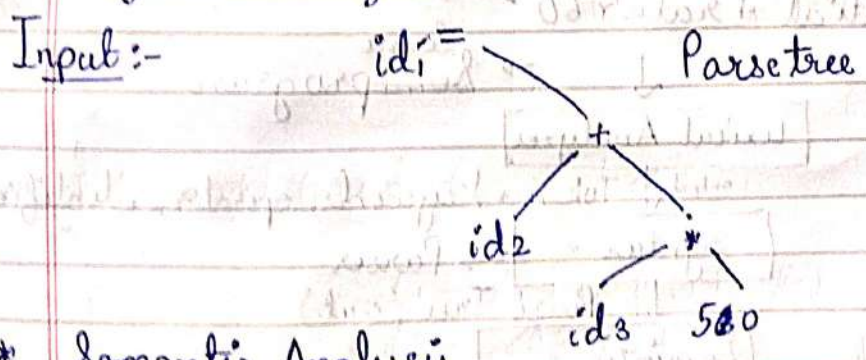 Input :-
id1 =
Parse tree
+
id2
*
id3
* Semantic Analysis